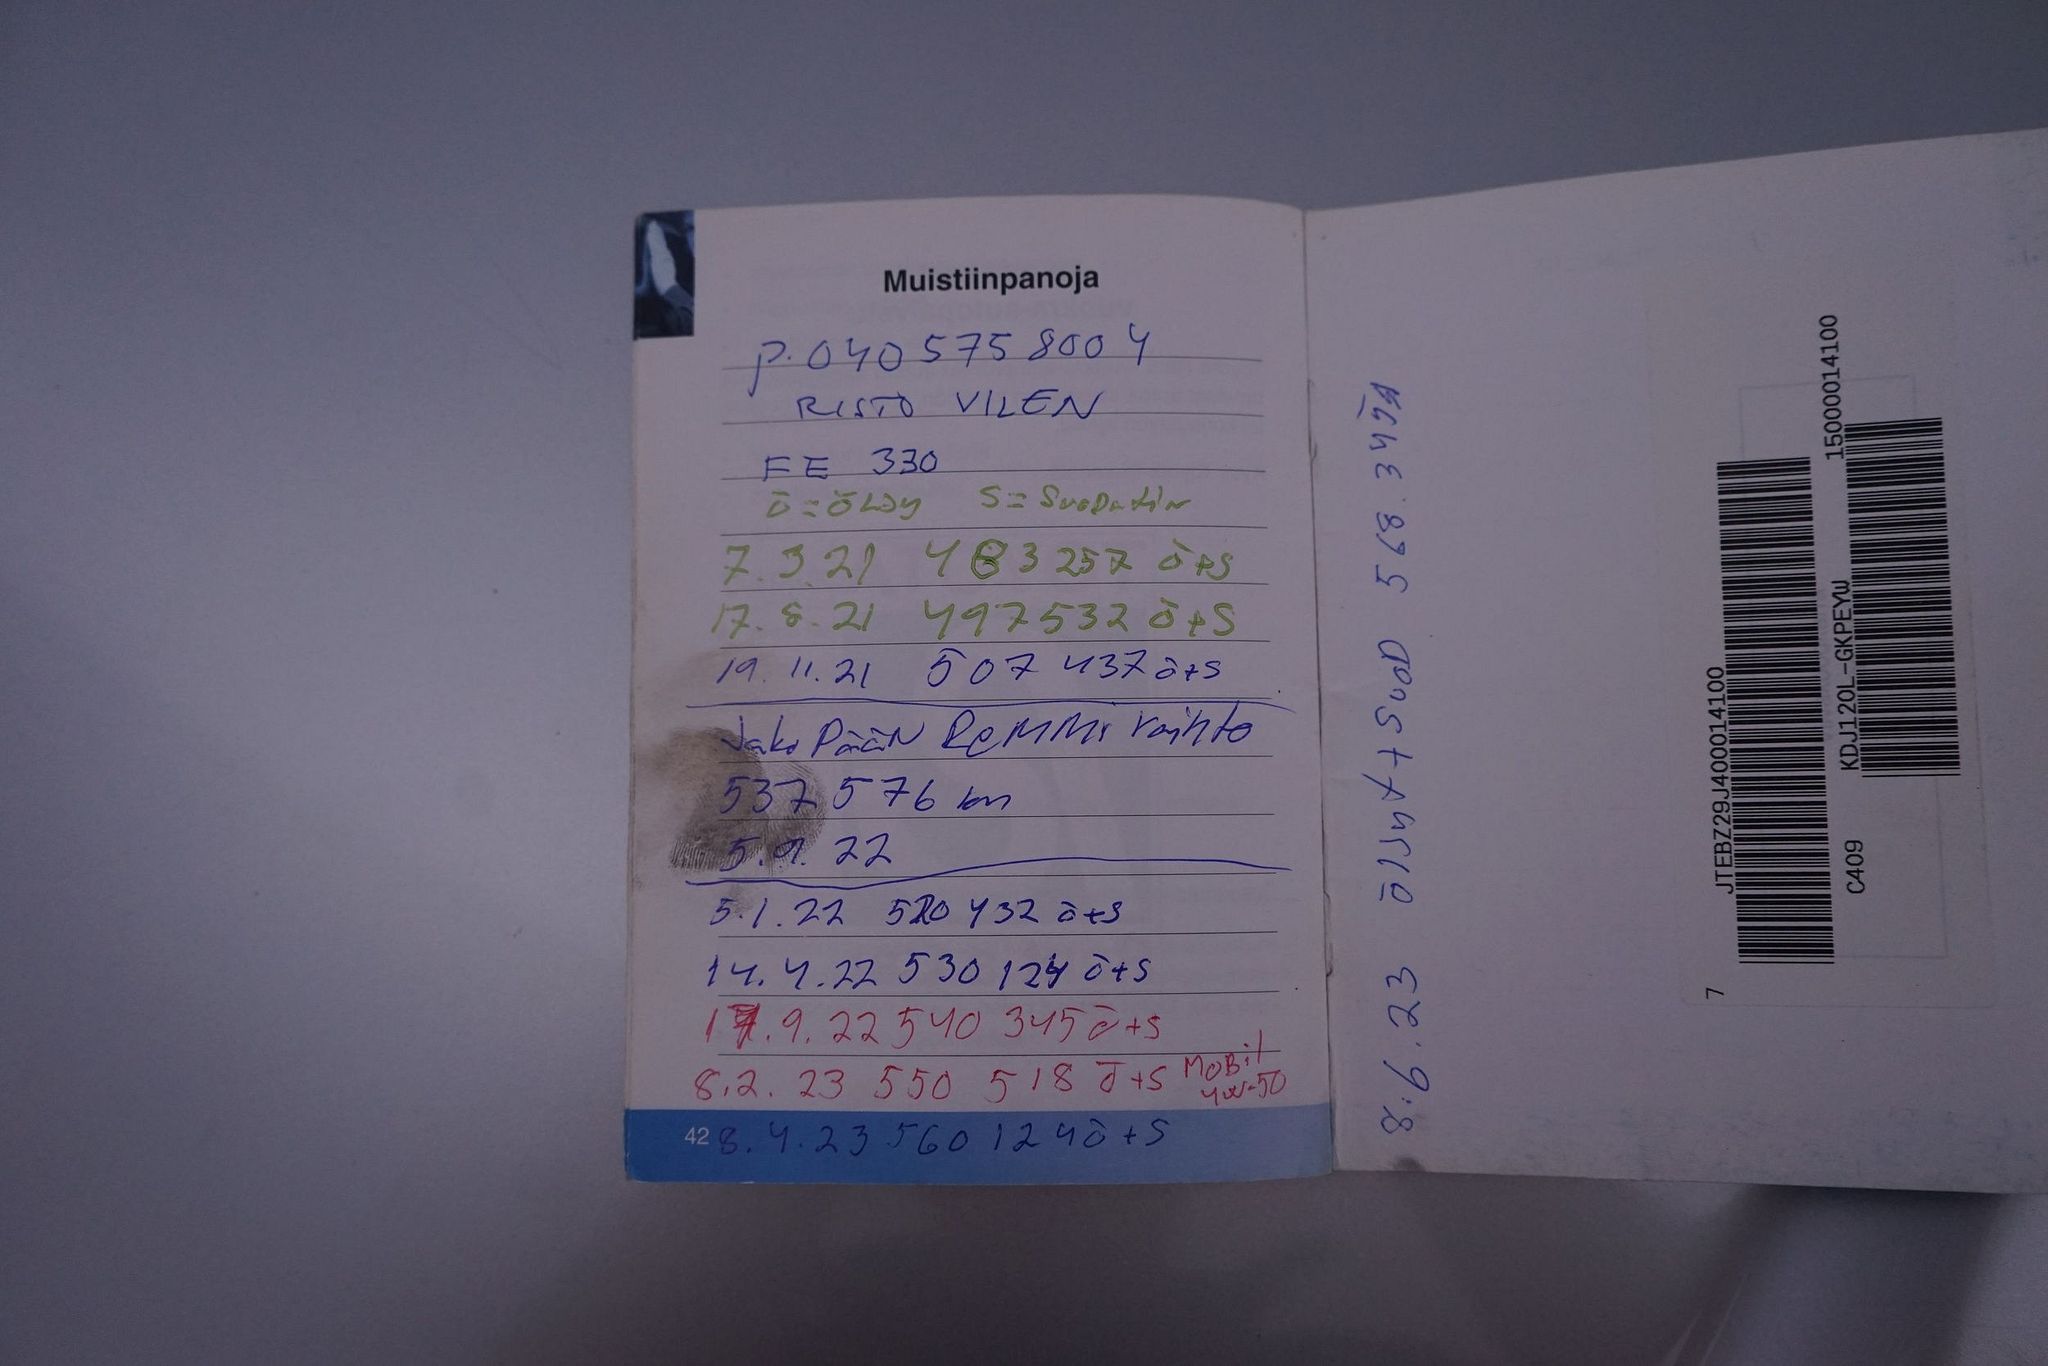 Muistiinpanoja
p. 040 575 8004
RISTO VILEN
FE 330
ō = ōLJy S = Suodatin
7.3.21 483257 ō+S
17.8.21 497532 ō+S
19.11.21 507 437 ō+S
Jako PääN ReMMi Vaihto
537 576 km
5.9.22
5.1.22 520 432 ō+S
14.4.22 530 124 ō+S
17.9.22 540 345 ō+S
8.2.23 550 518 ō+S MOBil
-50
42 8.4.23 560 124 ō+S
8.6.23 ōljyt + SuoD 568.349
JTEBZ29J400014100
C409 KDJ120L-GKPEYW 1500014100
7